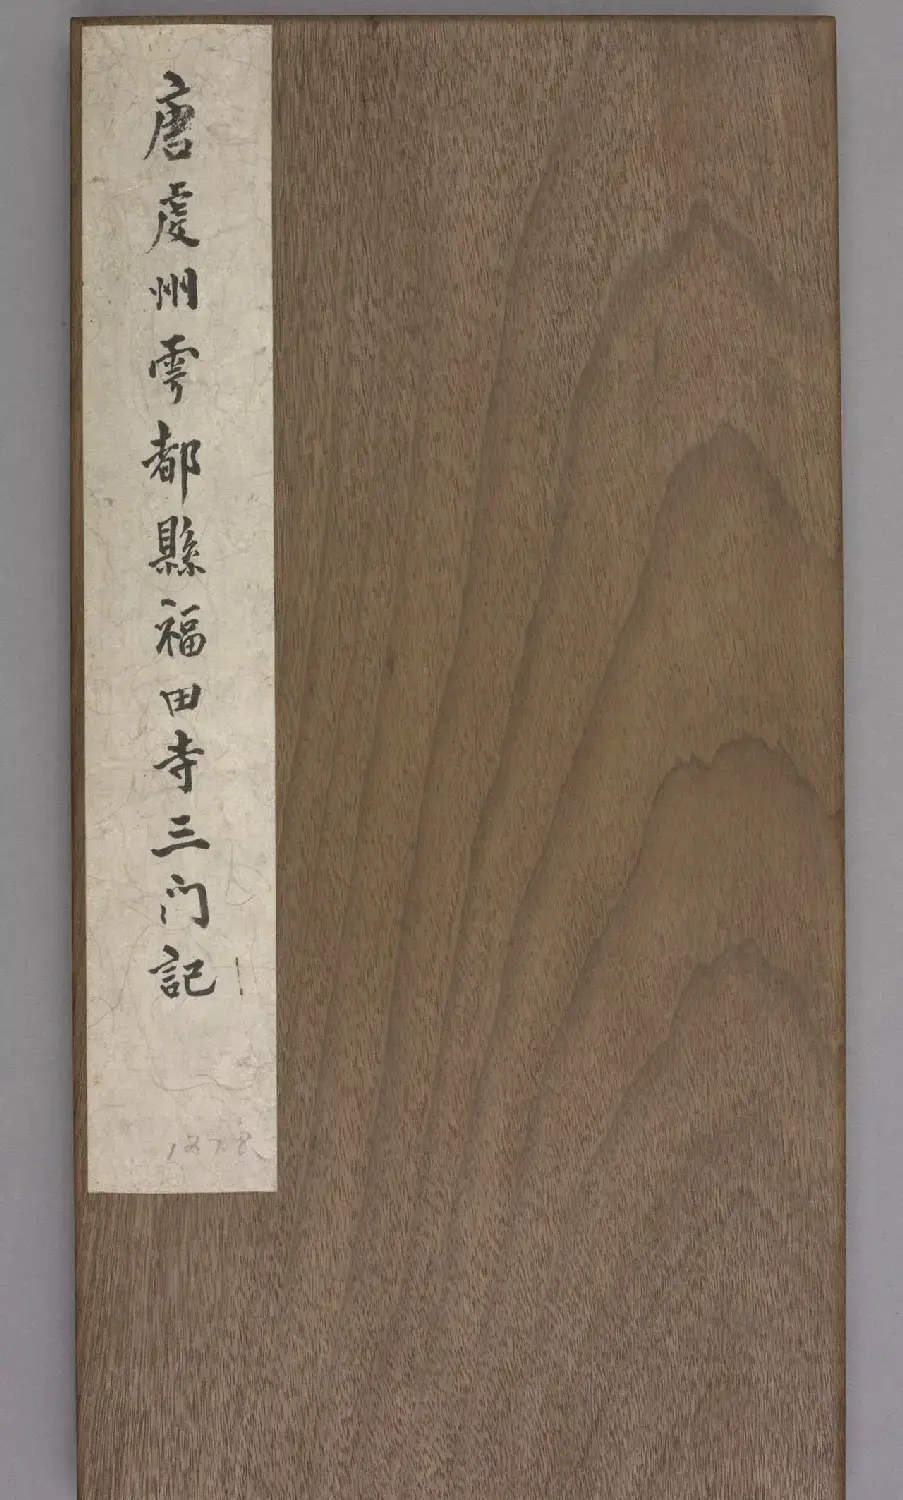 唐虔州雩都縣福田寺三门記
1278